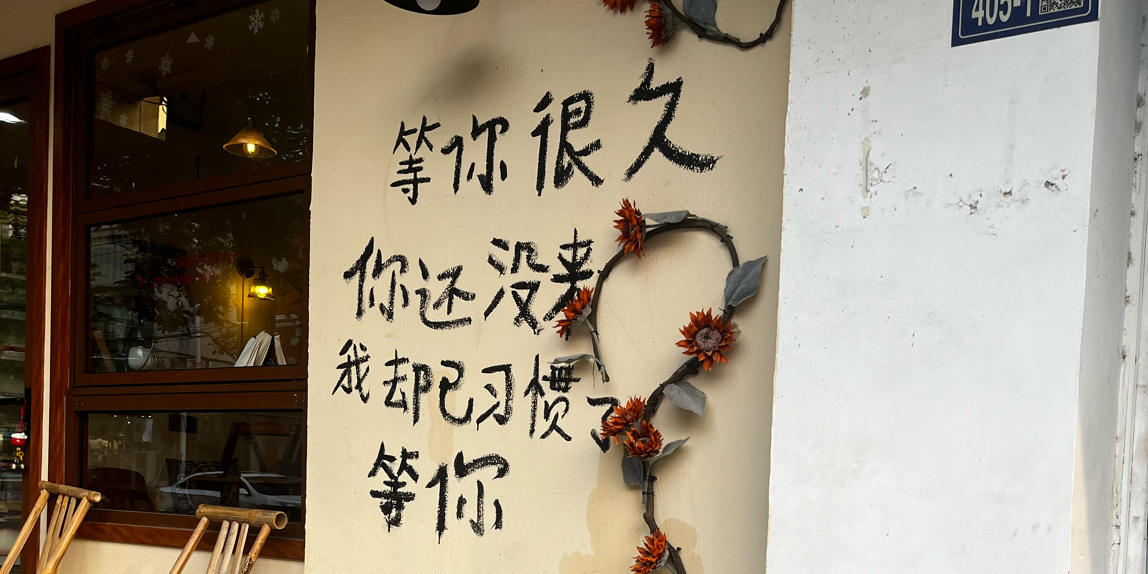 405-1
等你很久
你还没来
我却已习惯了
等你